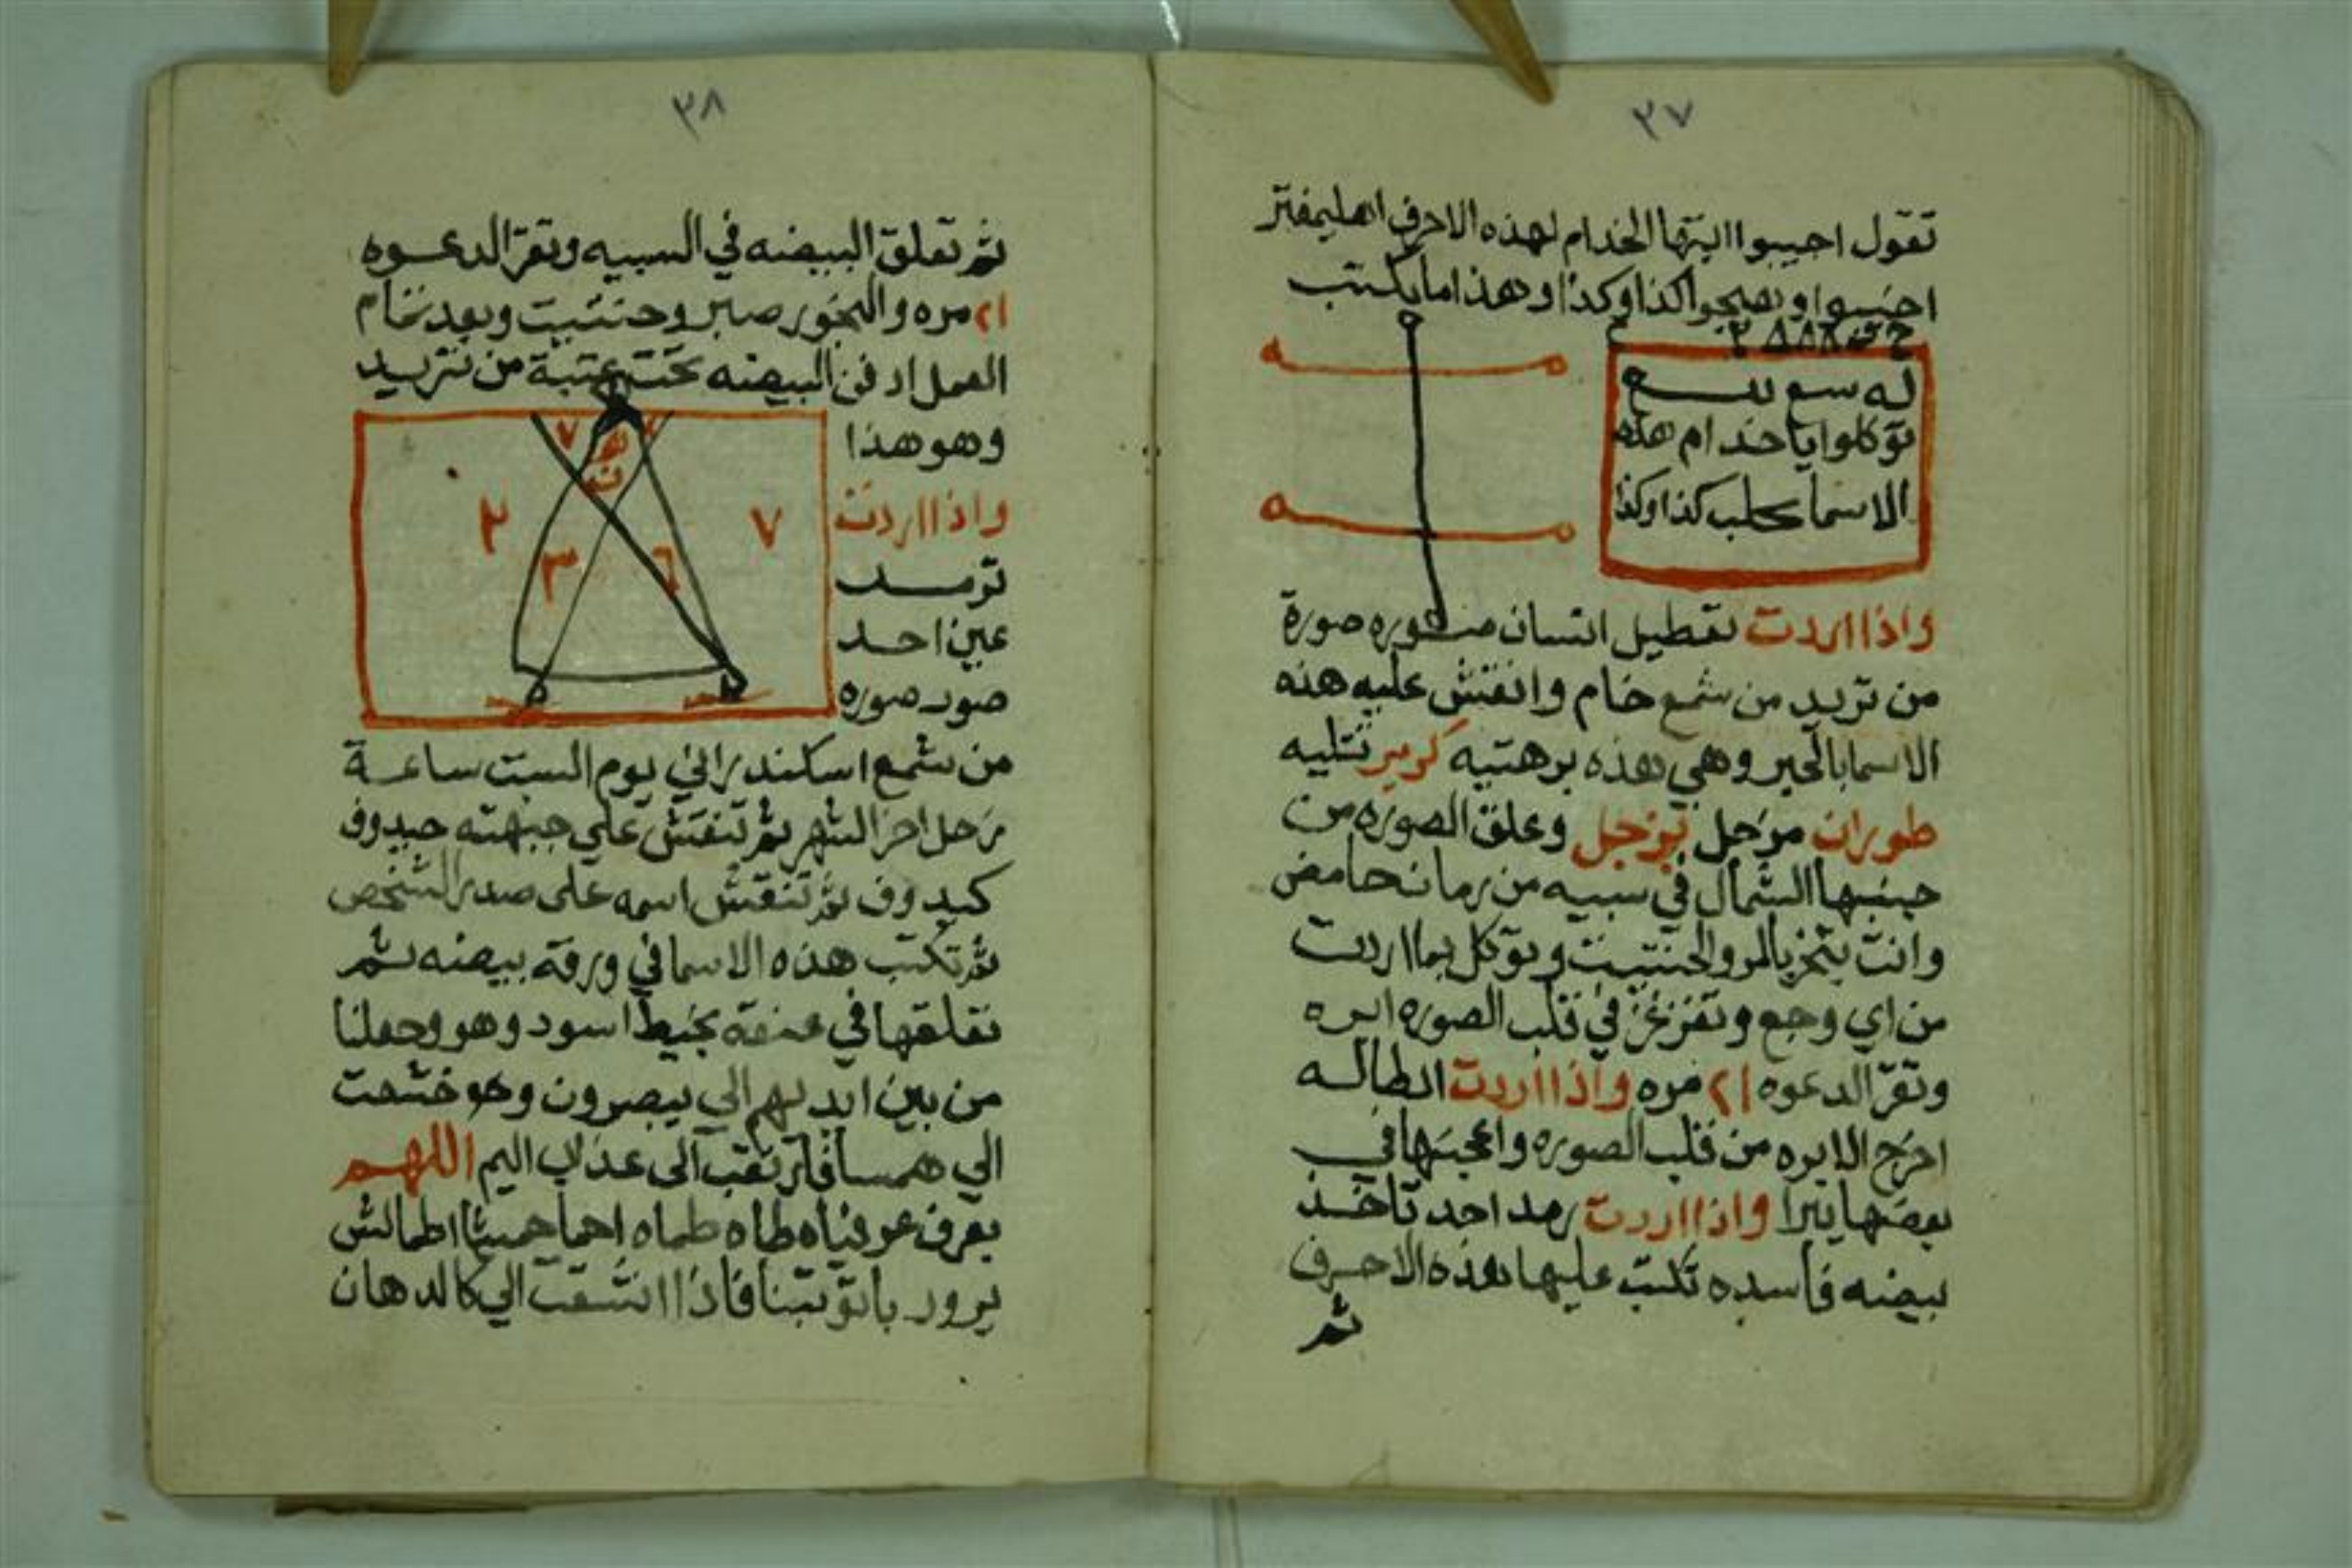 ٣٧
تقول اجيبوا ايتها الخدام لهذه الاحرف
احبسوا وهذا ما يكتب
له سع
توكلوا يا خدام هذه
الاسما بجلب كذا وكذا
واذا اردت تعطيل انسان صوره صورة
من تريد من شمع خام وانقش عليه هذه
الاسما بالحبر وهي هذه برهتيه كرير تتليه
طوران مزجل بزجل وعلق الصوره من
جنبها الشمال في سيبه من رمان حامض
وانت تبخر بالمر والحنتيت وتوكل بما اردت
من اي وجع وتغزغز في قلب الصوره ابره
وتقرا الدعوه ٢١ مره واذا اردت ابطاله
اخرج الابره من قلب الصوره واعجنها في
بعضها يبرا واذا اردت رمد احد تاخذ
بيضه فاسده تكتب عليها هذه الاحرف
ثم
٣٨
ثم تعلق البيضه في السيبه وتقرا الدعوه
٢١ مره والبخور صبر وحنتيت وبعد تمام
العمل ادفن البيضه تحت عتبة من تريد
وهو هذا
٧
٢
٣
٦
٧
واذا اردت
ترمد
عين احد
صور صوره
من شمع اسكندراني يوم السبت ساعة
زحل اخر الشهر ثم تنقش على جبهته حيدوف
كيدوف ثم تنقش اسمه على صدر الشخص
ثم تكتب هذه الاسما في ورقة بيضه ثم
تعلقها في عنقه بخيط اسود وهو وجعلنا
من بين ايديهم الي يبصرون وهو خشعت
الي همسا فارتقب الى عذاب اليم اللهم
بعرف
فاذا انشقت الي كالدهان